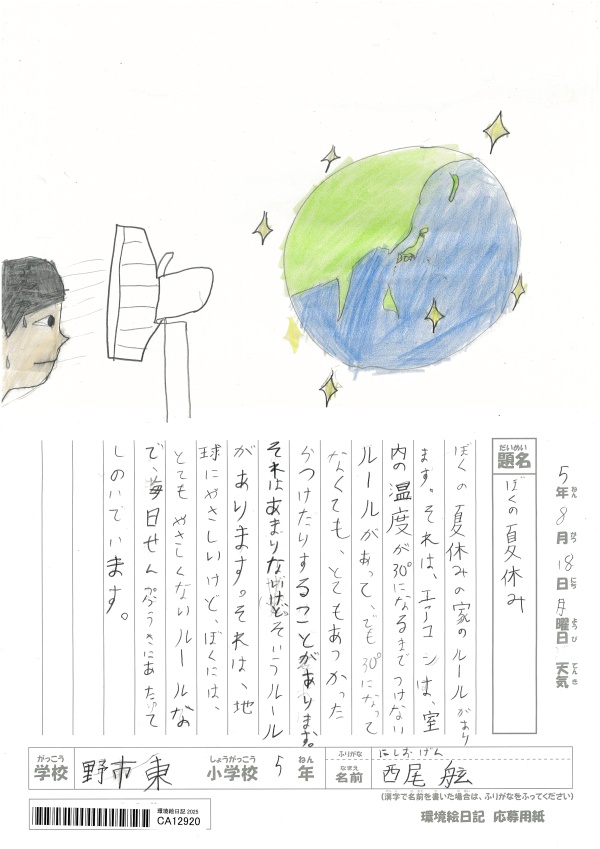 5年8月18日月曜日 天気
ねん がつ にち ようび てんき
だいめい
題名
ぼくの夏休み
ぼくの夏休みの家のルールがあり
ます。それは、エアコンは、室
内の温度が30°になるまでつけない
ルールがあって、でも30°になって
なくても、とてもあつかった
らつけたりすることがあります。
それはあまりないけど。そういうルール
があります。それは、地
球にやさしいけど、ぼくには、
とてもやさしくないルールな
ので、毎日せんぷうきにあたって
しのいでいます。
がっこう しょうがっこう ねん
学校 野市東 小学校 5年
ふりがな にしお げん
なまえ
名前 西尾 舷
(漢字で名前を書いた場合は、ふりがなをふってください)
環境絵日記 2025
CA12920
環境絵日記 応募用紙